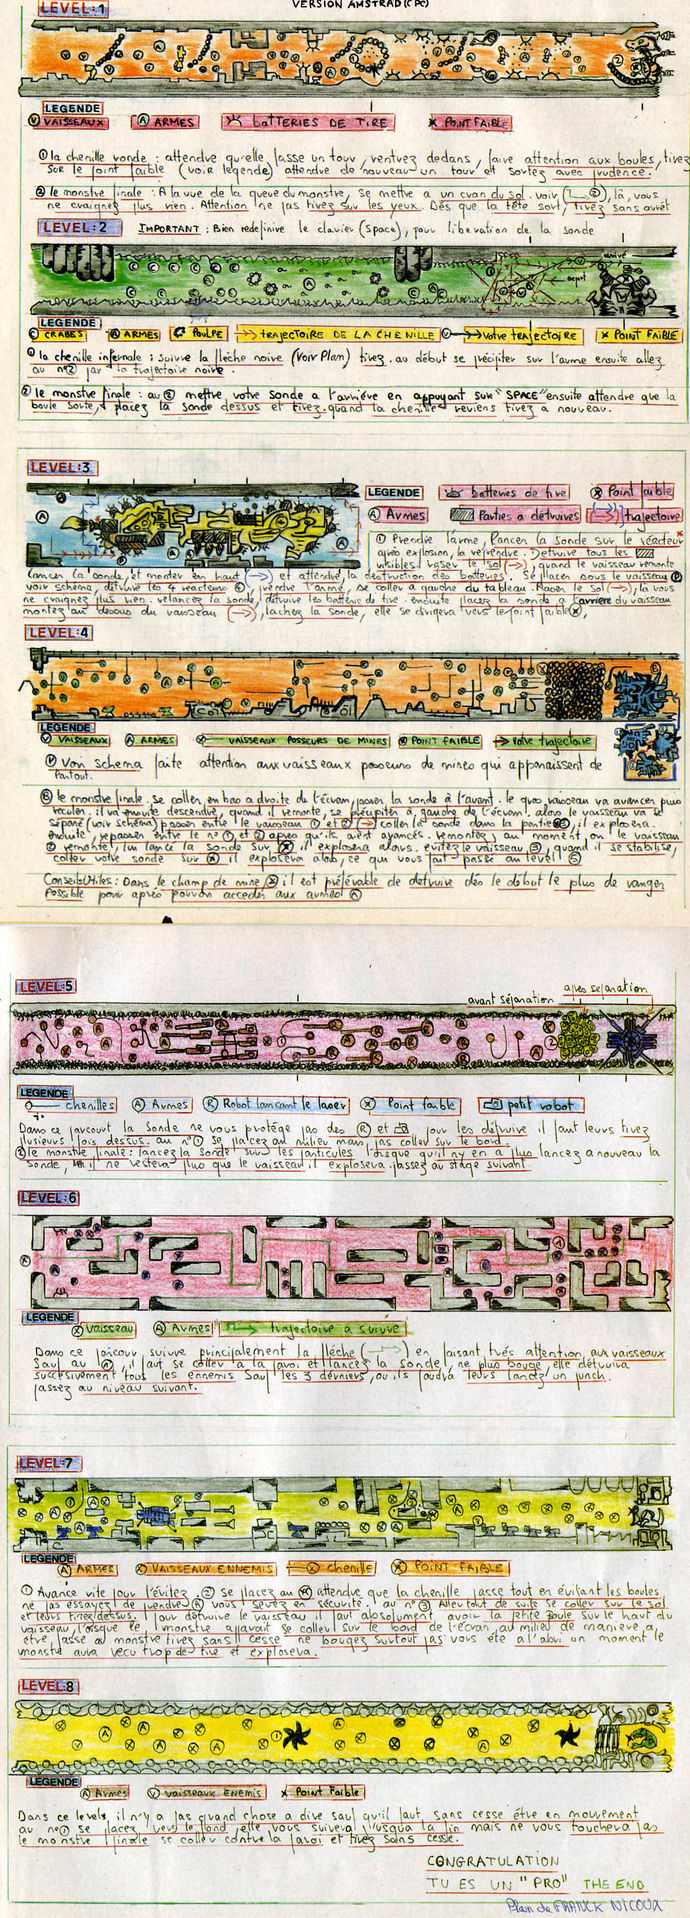 VERSION AMSTRAD (CPC)
LEVEL:1
LEGENDE
V VAISSEAUX A ARMES batteRIES DE TIRE x POINT FAIBLE
① la chenille ronde : attendre qu'elle fasse un tour, rentrez dedans, faire attention aux boules, tirez
SUR le point faible (voir legende) attendre de nouveau un tour et sortez avec prudence.
② le monstre finale : A la vue de la queue du monstre, se mettre a un cran du sol. voir ②, là, vous
ne craignez plus rien. Attention ne pas tirez sur les yeux. Dès que la tête sort, tirez sans arrêt
LEVEL:2 IMPORTANT : Bien redefinire le clavier (space), pour liberation de la sonde
LEGENDE
C CRABES A ARMES POULPE TRAJECTOIRE DE LA CHENILLE V VOtRE TRAJECTOIRE x POINT FAIBLE
① la chenille infernale : suivre la flèche noire (Voir Plan) tirez. au début se précipiter sur l'arme ensuite allez
au n°2 par la trajectoire noire.
② le monstre finale : au ② mettre votre sonde a l'arrière en appuyant sur "SPACE" ensuite attendre que la
boule sorte, placez la sonde dessus et tirez quand la chenille reviens tirez a nouveau.
LEVEL:3
LEGENDE batteries de tire x Point faible
A Armes Parties a détruires trajectoire
① Prendre l'arme, lancer la sonde sur le réacteur
après explosion, la reprendre. Detruire tous les
visibles. Raser le sol, quand le vaisseau remonte
lancer la sonde, et monter en haut et attendre, la destruction des batteries. Se placer sous le vaisseau P
voir schema, détruire les 4 réacteurs, prendre l'arme, se coller a gauche du tableau. Raser le sol, la vous
ne craignez plus rien. relancez la sonde, détruire les batterie de tire. ensuite placez la sonde a l'arrière du vaisseau
montez au dessus du vaisseau, lachez la sonde, elle se dirigera vers le point faible x,
LEVEL:4
LEGENDE
V VAISSEAUX A ARMES VAISSEAUX POSEURS DE MINES x POINT FAIBLE votre trajectoire
Voir schema faite attention aux vaisseaux poseurs de mines qui apparaissent de
Partout.
B le monstre finale. se coller en bas a droite de l'écran, poser la sonde à l'avant. le gros vaisseau va avancer puis
reculer. il va ensuite descendre, quand il remonte, se précipiter à gauche de l'écran. alors le vaisseau va se
séparé (voir schéma) passer entre le vaisseau ① et ② coller la sonde dans la partie, il explosera.
ensuite, repasser entre le n° ① et ② apres qu'ils aient avancés. remontez, au moment, ou le vaisseau
② remonte, lancé la sonde sur x, il explosera alors. evitez le vaisseau ③, quand il se stabilise,
coller votre sonde sur x il explosera alors, ce qui vous fait passé au level 5
Conseils Utiles : Dans le champ de mine il est préférable de detruire dès le début le plus de ranger
Possible pour après pouvoir acceder aux armes A
LEVEL:5
avant séparation après separation
LEGENDE
chenilles A Armes R Robot lancant le laser x Point faible petit robot
Dans ce parcourt la Sonde ne vous protège pas des R et pour les détruire il faut leurs tirez
plusieurs fois dessus. au n° ① se placez au milieu mais pas coller sur le bord.
② le monstre finale : lancez la sonde sur les particules lorsque qu'il n'y en a plus lancez a nouveau la
sonde, il ne restera plus que le vaisseau il explosera. passez au stage suivant.
LEVEL:6
LEGENDE
x Vaisseau A Armes trajectoire a suivre
Dans ce parcour, suivre principalement la flèche en faisant très attention, aux vaisseaux
Sauf au, il faut se coller a la paroi et lancez la sonde, ne plus bouge, elle détruira
successivement tous les ennemis Sauf les 3 derniers, ou ils faudra leurs lancez un punch.
passez au niveau suivant.
LEVEL:7
LEGENDE
A ARMES x VAISSEAUX ENNEMIS chenille x POINT FAIBLE
① Avance vite pour l'évitez. ② se placez au R attendre que la chenille passe tout en évitant les boules
ne pas essayez de prendre R vous serez en sécurité. au n°③ Allez tout de suite se coller sur le sol
et leurs tirez dessus. pour detruire le vaisseau il faut absolument avoir la petite boule sur le haut du
vaisseau, lorsque le monstre aparait se coller sur le bord de l'écran, au milieu de maniere a
être face au monstre tirez sans cesse ne bougez surtout pas vous ete a l'abri un moment le
monstre aura recu trop de tire et explosera.
LEVEL:8
LEGENDE
A Armes V vaisseaux ENEMIS x Point Faible
Dans ce levels, il n'y a pas grand chose a dire sauf qu'il faut, sans cesse être en mouvement
au n° ① se placez vers le fond elle vous suivera jusqua la fin mais ne vous touchera pas
le monstre finale se coller contre la paroi et tirez sans cesse.
CONGRATULATION
TU ES UN "PRO" THE END
Plan de FRANCK NICOUX